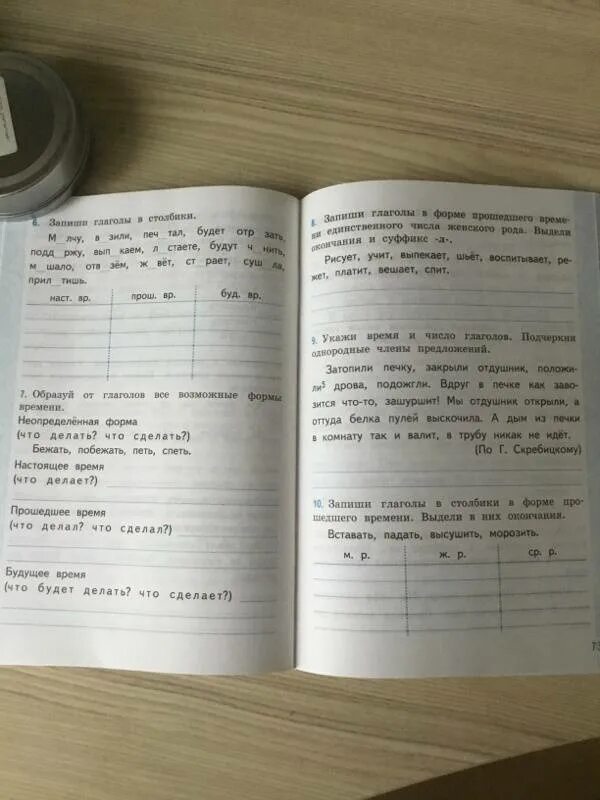 6. Запиши глаголы в столбики.
М_лчу, в_зили, печ_тал, будет отр_зать,
подд_ржу, вып_каем, л_стаете, будут ч_нить,
м_шало, отв_зём, ж_вёт, ст_рает, суш_ла,
прил_тишь.
наст. вр. прош. вр. буд. вр.
7. Образуй от глаголов все возможные формы
времени.
Неопределённая форма
(что делать? что сделать?)
Бежать, побежать, петь, спеть.
Настоящее время
(что делает?)
Прошедшее время
(что делал? что сделал?)
Будущее время
(что будет делать? что сделает?)
8. Запиши глаголы в форме прошедшего време-
ни единственного числа женского рода. Выдели
окончания и суффикс -л-.
Рисует, учит, выпекает, шьёт, воспитывает, ре-
жет, платит, вешает, спит.
9. Укажи время и число глаголов. Подчеркни
однородные члены предложений.
Затопили печку, закрыли отдушник, положи-
ли⁵ дрова, подожгли. Вдруг в печке как заво-
зится что-то, зашуршит! Мы отдушник открыли, а
оттуда белка пулей выскочила. А дым из печки
в комнату так и валит, в трубу никак не идёт.
(По Г. Скребицкому)
10. Запиши глаголы в столбики в форме про-
шедшего времени. Выдели в них окончания.
Вставать, падать, высушить, морозить.
м. р. ж. р. ср. р.